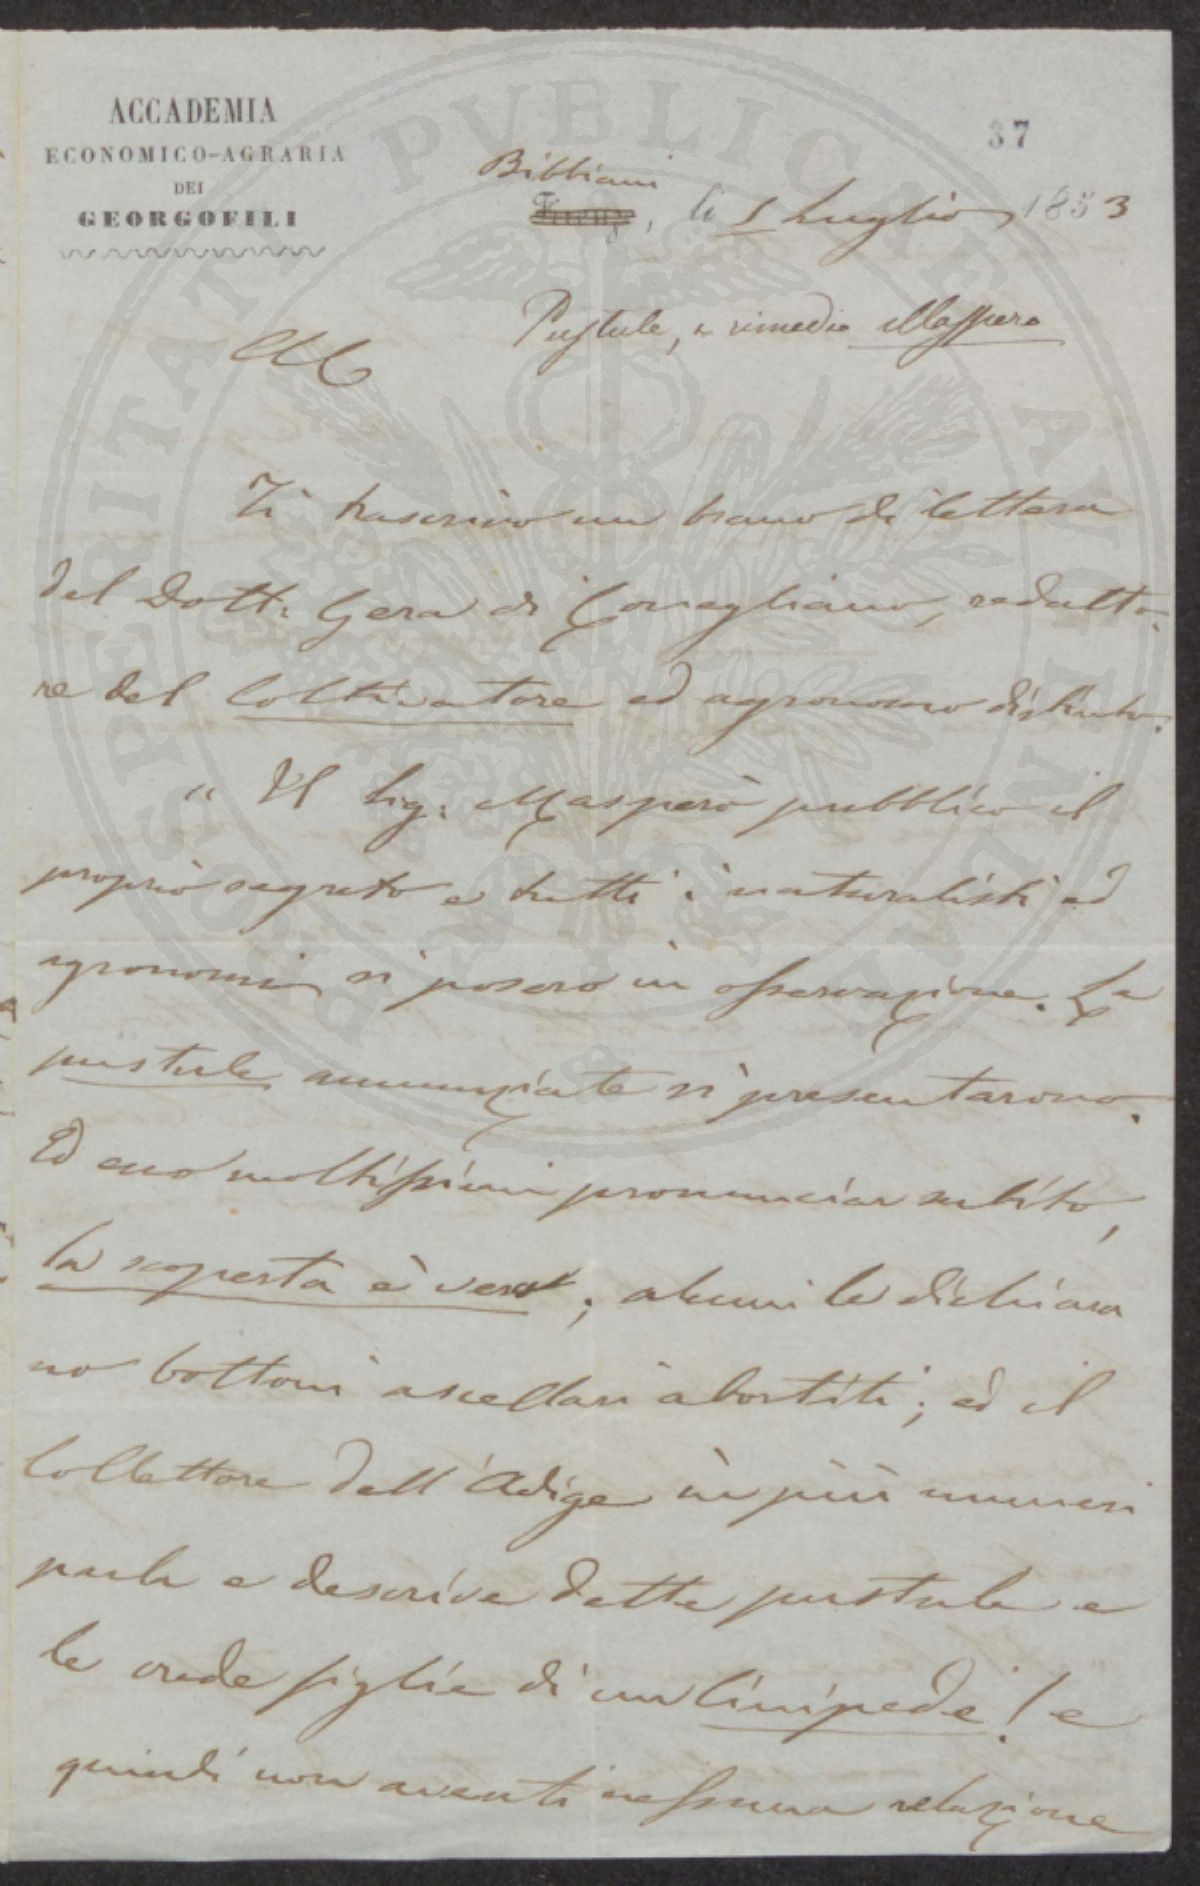 ACCADEMIA
ECONOMICO-AGRARIA
DEI
GEORGOFILI
37
Bibbiani
Firenze, li 5 Luglio 1853
Pustule, e rimedio Maspero
Ti trascrivo un brano di lettera
del Dott. Gera di Conegliano, redatto-
re del Coltivatore ed agronomo distinto.
"Il Sig. Masperò pubblico il
proprio segreto e tutti i naturalisti ed
agronomi si posero in osservazione. Le
pustule annunziate si presentarono.
Ed ecco moltissimi pronunciar subito,
la scoperta è vera; alcuni le dichiara
no bottoni ascellari abortiti; ed il
Collettore dell'Adige in più numeri
parla e descrive dette pustule e
le crede figlie di un Cinipede! e
quindi non aventi nessuna relazione
PROSPERITATI PUBLICAE AVGENDAE